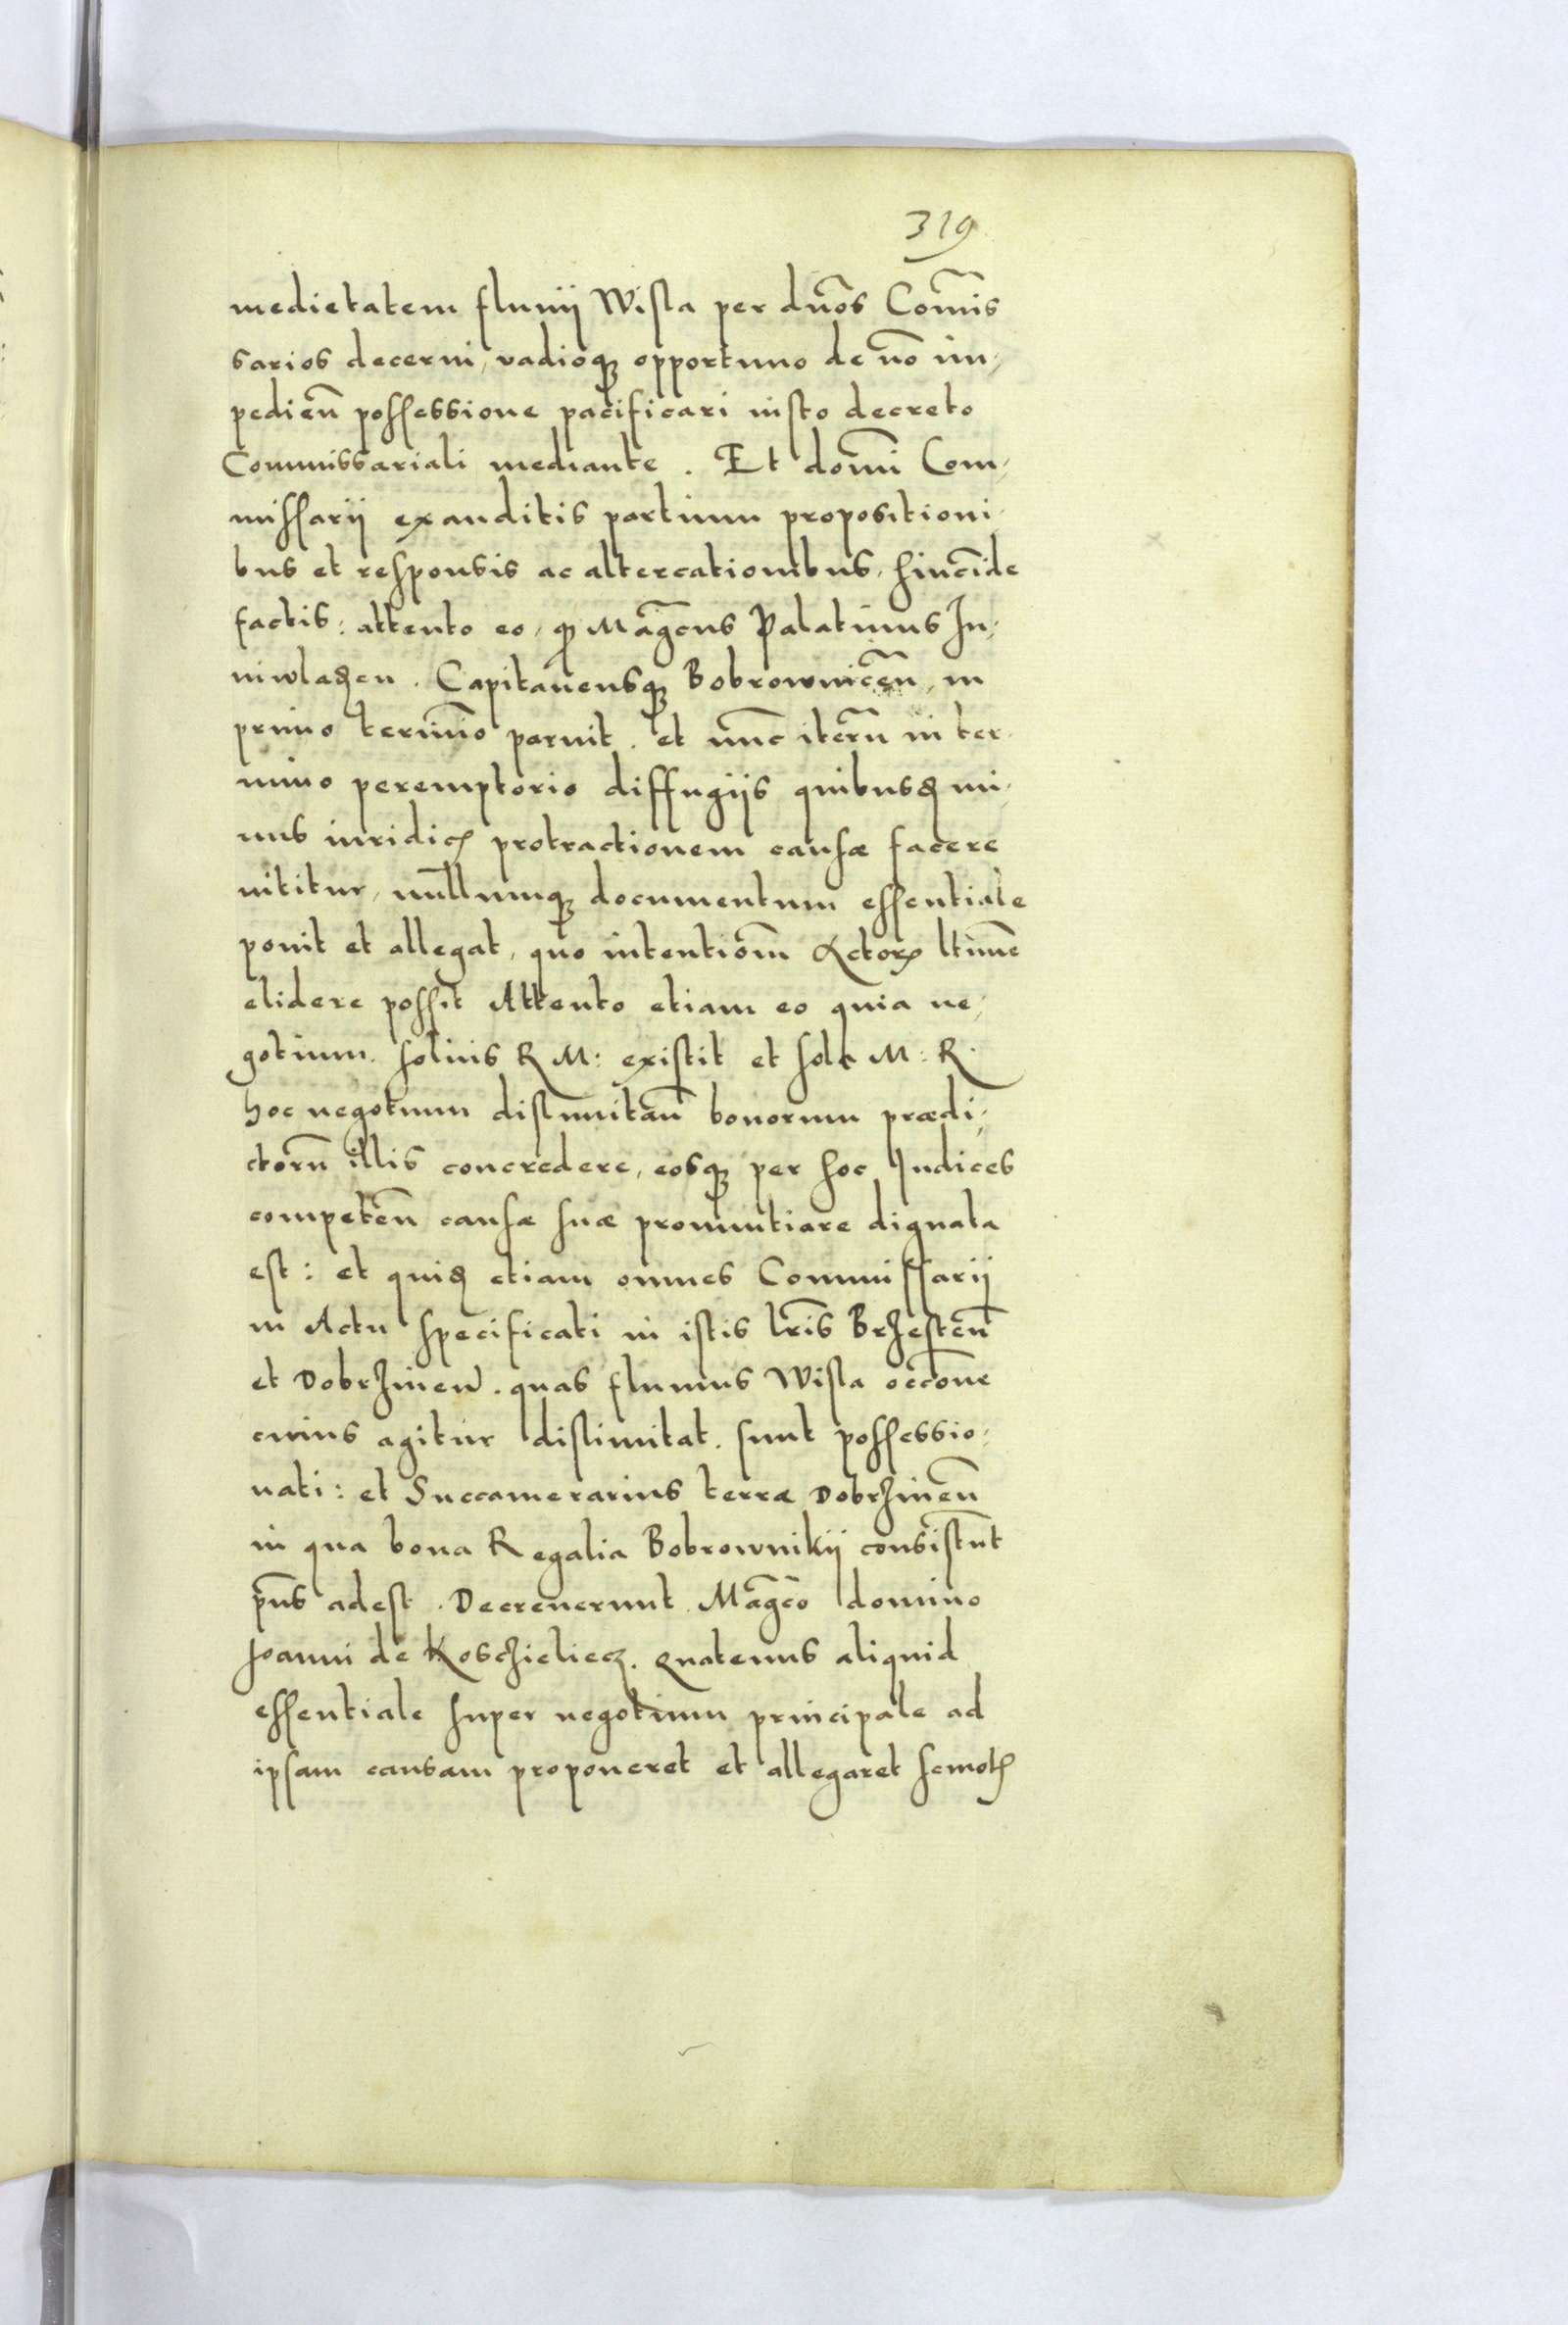 319
medietatem fluuij Wisla per dnōs Com̄is
sarios decerni, vadioq; opportuno de nō im-
pedien̄ possessione pacificari iusto decreto
Commissariali mediante. Et domi̅ Com-
missarij exauditis partium propositioni-
bus et responsis ac altercationibus, hinc̄ide
factis: attento eo, qꝫ Mag̅cus Palatinus Iu-
niwladꝫen. Capitaneusq; Bobrownicen̄, in
primo termi̅o paruit. et nunc iterū in ter-
mino peremptorio diffugijs quibusdꝫ mi-
nus iuridicꝭ protractionem causæ facere
nititur, nullumq; documentum essentiale
ponit et allegat, quo intentiōm Actorꝭ ltim̄e
elidere possit Attento etiam eo quia ne-
gotium solius R M: existit et sola M: R.
hoc negotium dislimitan̄ bonorum prædi-
ctorū illis concredere, eosq; per hoc Iudices
competen̄ causæ suæ pronuntiare dignata
est: et quidꝫ etiam omnes Commissarij
in Actu specificati in istis lrīs Brzesten̄
et Dobrzinen̄. quas fluuius Wisla occ̄one
cuius agitur dislimitat. sunt possessio-
nati: et Succamerarius terræ Dobrzinen̄
in qua bona Regalia Bobrownikij consistūt
pn̄s adest. Decreuerunt Mag̅co domino
Joanni de Koszieliecz. Quatenus aliquid
essentiale super negotium principale ad
ipsam causam proponeret et allegaret semotꝭ